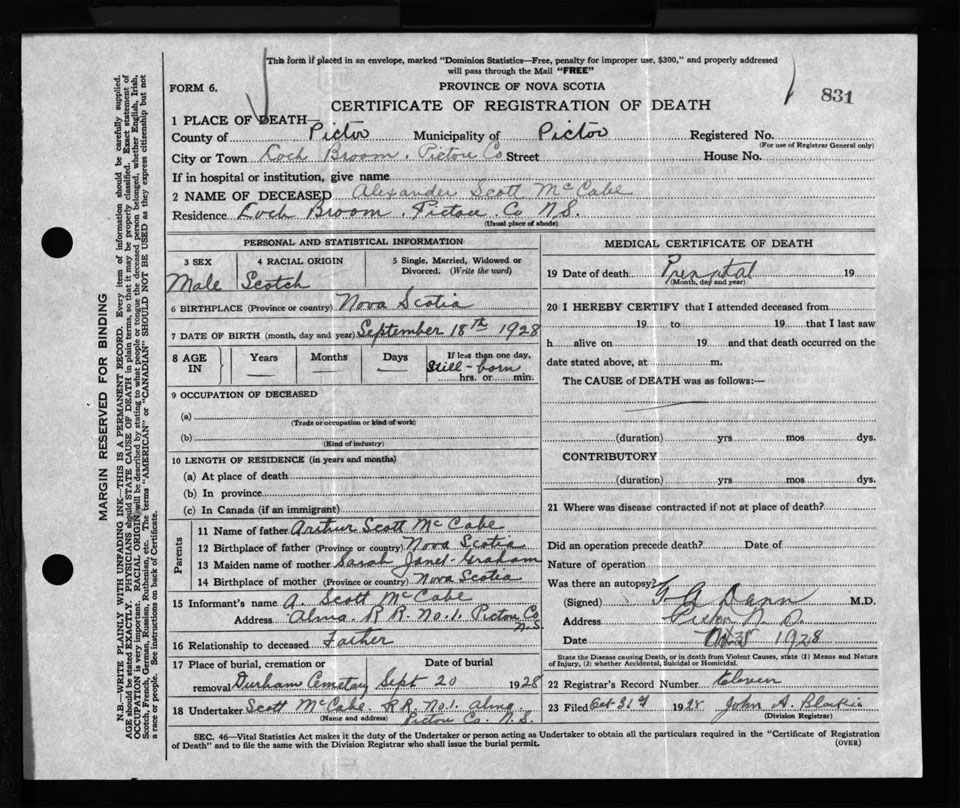 This form if placed in an envelope, marked "Dominion Statistics—Free, penalty for improper use, $300," and properly addressed
will pass through the Mail "FREE"
FORM 6.
PROVINCE OF NOVA SCOTIA
831
CERTIFICATE OF REGISTRATION OF DEATH
1 PLACE OF DEATH—
County of Pictou Municipality of Pictou Registered No.
(For use of Registrar General only)
City or Town Loch Broom, Pictou Co Street House No.
If in hospital or institution, give name
2 NAME OF DECEASED Alexander Scott McCabe
Residence Loch Broom, Pictou Co N.S.
(Usual place of abode)
PERSONAL AND STATISTICAL INFORMATION
3 SEX
Male
4 RACIAL ORIGIN
Scotch
5 Single, Married, Widowed or
Divorced. (Write the word)
6 BIRTHPLACE (Province or country) Nova Scotia
7 DATE OF BIRTH (month, day and year) September 18th 1928
8 AGE IN
Years —
Months —
Days —
If less than one day,
Still-born
hrs. or min.
9 OCCUPATION OF DECEASED
(a)
(Trade or occupation or kind of work)
(b)
(Kind of industry)
10 LENGTH OF RESIDENCE (in years and months)
(a) At place of death
(b) In province
(c) In Canada (if an immigrant)
Parents
11 Name of father Arthur Scott McCabe
12 Birthplace of father (Province or country) Nova Scotia
13 Maiden name of mother Sarah Janet Graham
14 Birthplace of mother (Province or country) Nova Scotia
15 Informant's name A. Scott McCabe
Address Alma R R. No. 1. Pictou Co
N.S.
16 Relationship to deceased Father
17 Place of burial, cremation or
removal Durham Cemetary
Date of burial
Sept 20 1928
18 Undertaker Scott McCabe. R R. No. 1. Alma
(Name and address) Pictou Co. N.S.
MEDICAL CERTIFICATE OF DEATH
19 Date of death Prenatal 19
(Month, day and year)
20 I HEREBY CERTIFY that I attended deceased from
19 to 19 that I last saw
h alive on 19 and that death occurred on the
date stated above, at m.
The CAUSE of DEATH was as follows:—
(duration) yrs mos dys.
CONTRIBUTORY
(duration) yrs mos dys.
21 Where was disease contracted if not at place of death?
Did an operation precede death? Date of
Nature of operation
Was there an autopsy?
(Signed) G A Dunn M.D.
Address Pictou N. S.
Date 1928
State the Disease causing Death, or in death from Violent Causes, state (1) Means and Nature
of Injury, (2) whether Accidental, Suicidal or Homicidal.
22 Registrar's Record Number Eleven
23 Filed Oct 31st 1928 John A. Blaikie
(Division Registrar)
SEC. 46—Vital Statistics Act makes it the duty of the Undertaker or person acting as Undertaker to obtain all the particulars required in the "Certificate of Registration
of Death" and to file the same with the Division Registrar who shall issue the burial permit.
(OVER)
MARGIN RESERVED FOR BINDING
N.B.—WRITE PLAINLY WITH UNFADING INK—THIS IS A PERMANENT RECORD. Every item of information should be carefully supplied.
AGE should be stated EXACTLY. PHYSICIANS should STATE CAUSE OF DEATH in plain terms, so that it may be properly classified. Exact statement of
OCCUPATION is very important. RACIAL ORIGIN will be described by stating to what people or tongue the deceased person belonged, whether English, Irish,
Scotch, French, German, Russian, Ruthenian, etc. The terms "AMERICAN" or "CANADIAN" SHOULD NOT BE USED as they express citizenship but not
a race or people. See instructions on back of Certificate.